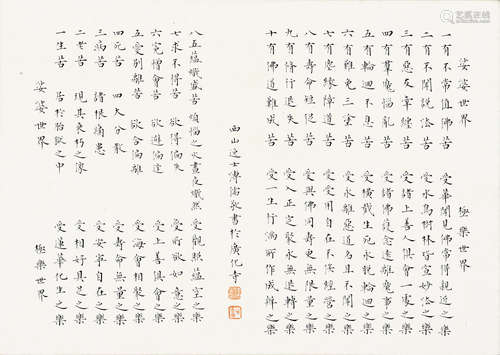 娑婆世界 極樂世界
一有不常值佛苦 受華開見佛常得親近之樂
二有不聞說法苦 受水鳥樹林皆宣妙法之樂
三有惡友牽纏苦 受諸上善人俱會一處之樂
四有羣魔惱亂苦 受諸佛護念遠離魔事之樂
五有輪迴不息苦 受橫截生死永脫輪迴之樂
六有難免三塗苦 受永離惡道名且不聞之樂
七有塵緣障道苦 受受用自然不俟經營之樂
八有壽命短促苦 受與佛同壽更無限量之樂
九有修行退失苦 受入正定聚永無退轉之樂
十有佛道難成苦 受一生行滿所作成辦之樂
娑婆世界 極樂世界
一生苦 居於胎獄之中 受蓮華化生之樂
二老苦 現其衰朽之像 受相好具足之樂
三病苦 諸根痛患 受安寧自在之樂
四死苦 四大分散 受壽命無量之樂
五愛別離苦 欲合偏離 受海會相聚之樂
六冤憎會苦 欲避偏逢 受上善俱會之樂
七求不得苦 欲得偏失 受所欲如意之樂
八五蘊熾盛苦 煩惱之火晝夜熾然 受觀照蘊空之樂
西山逸士溥儒敬書於廣化寺